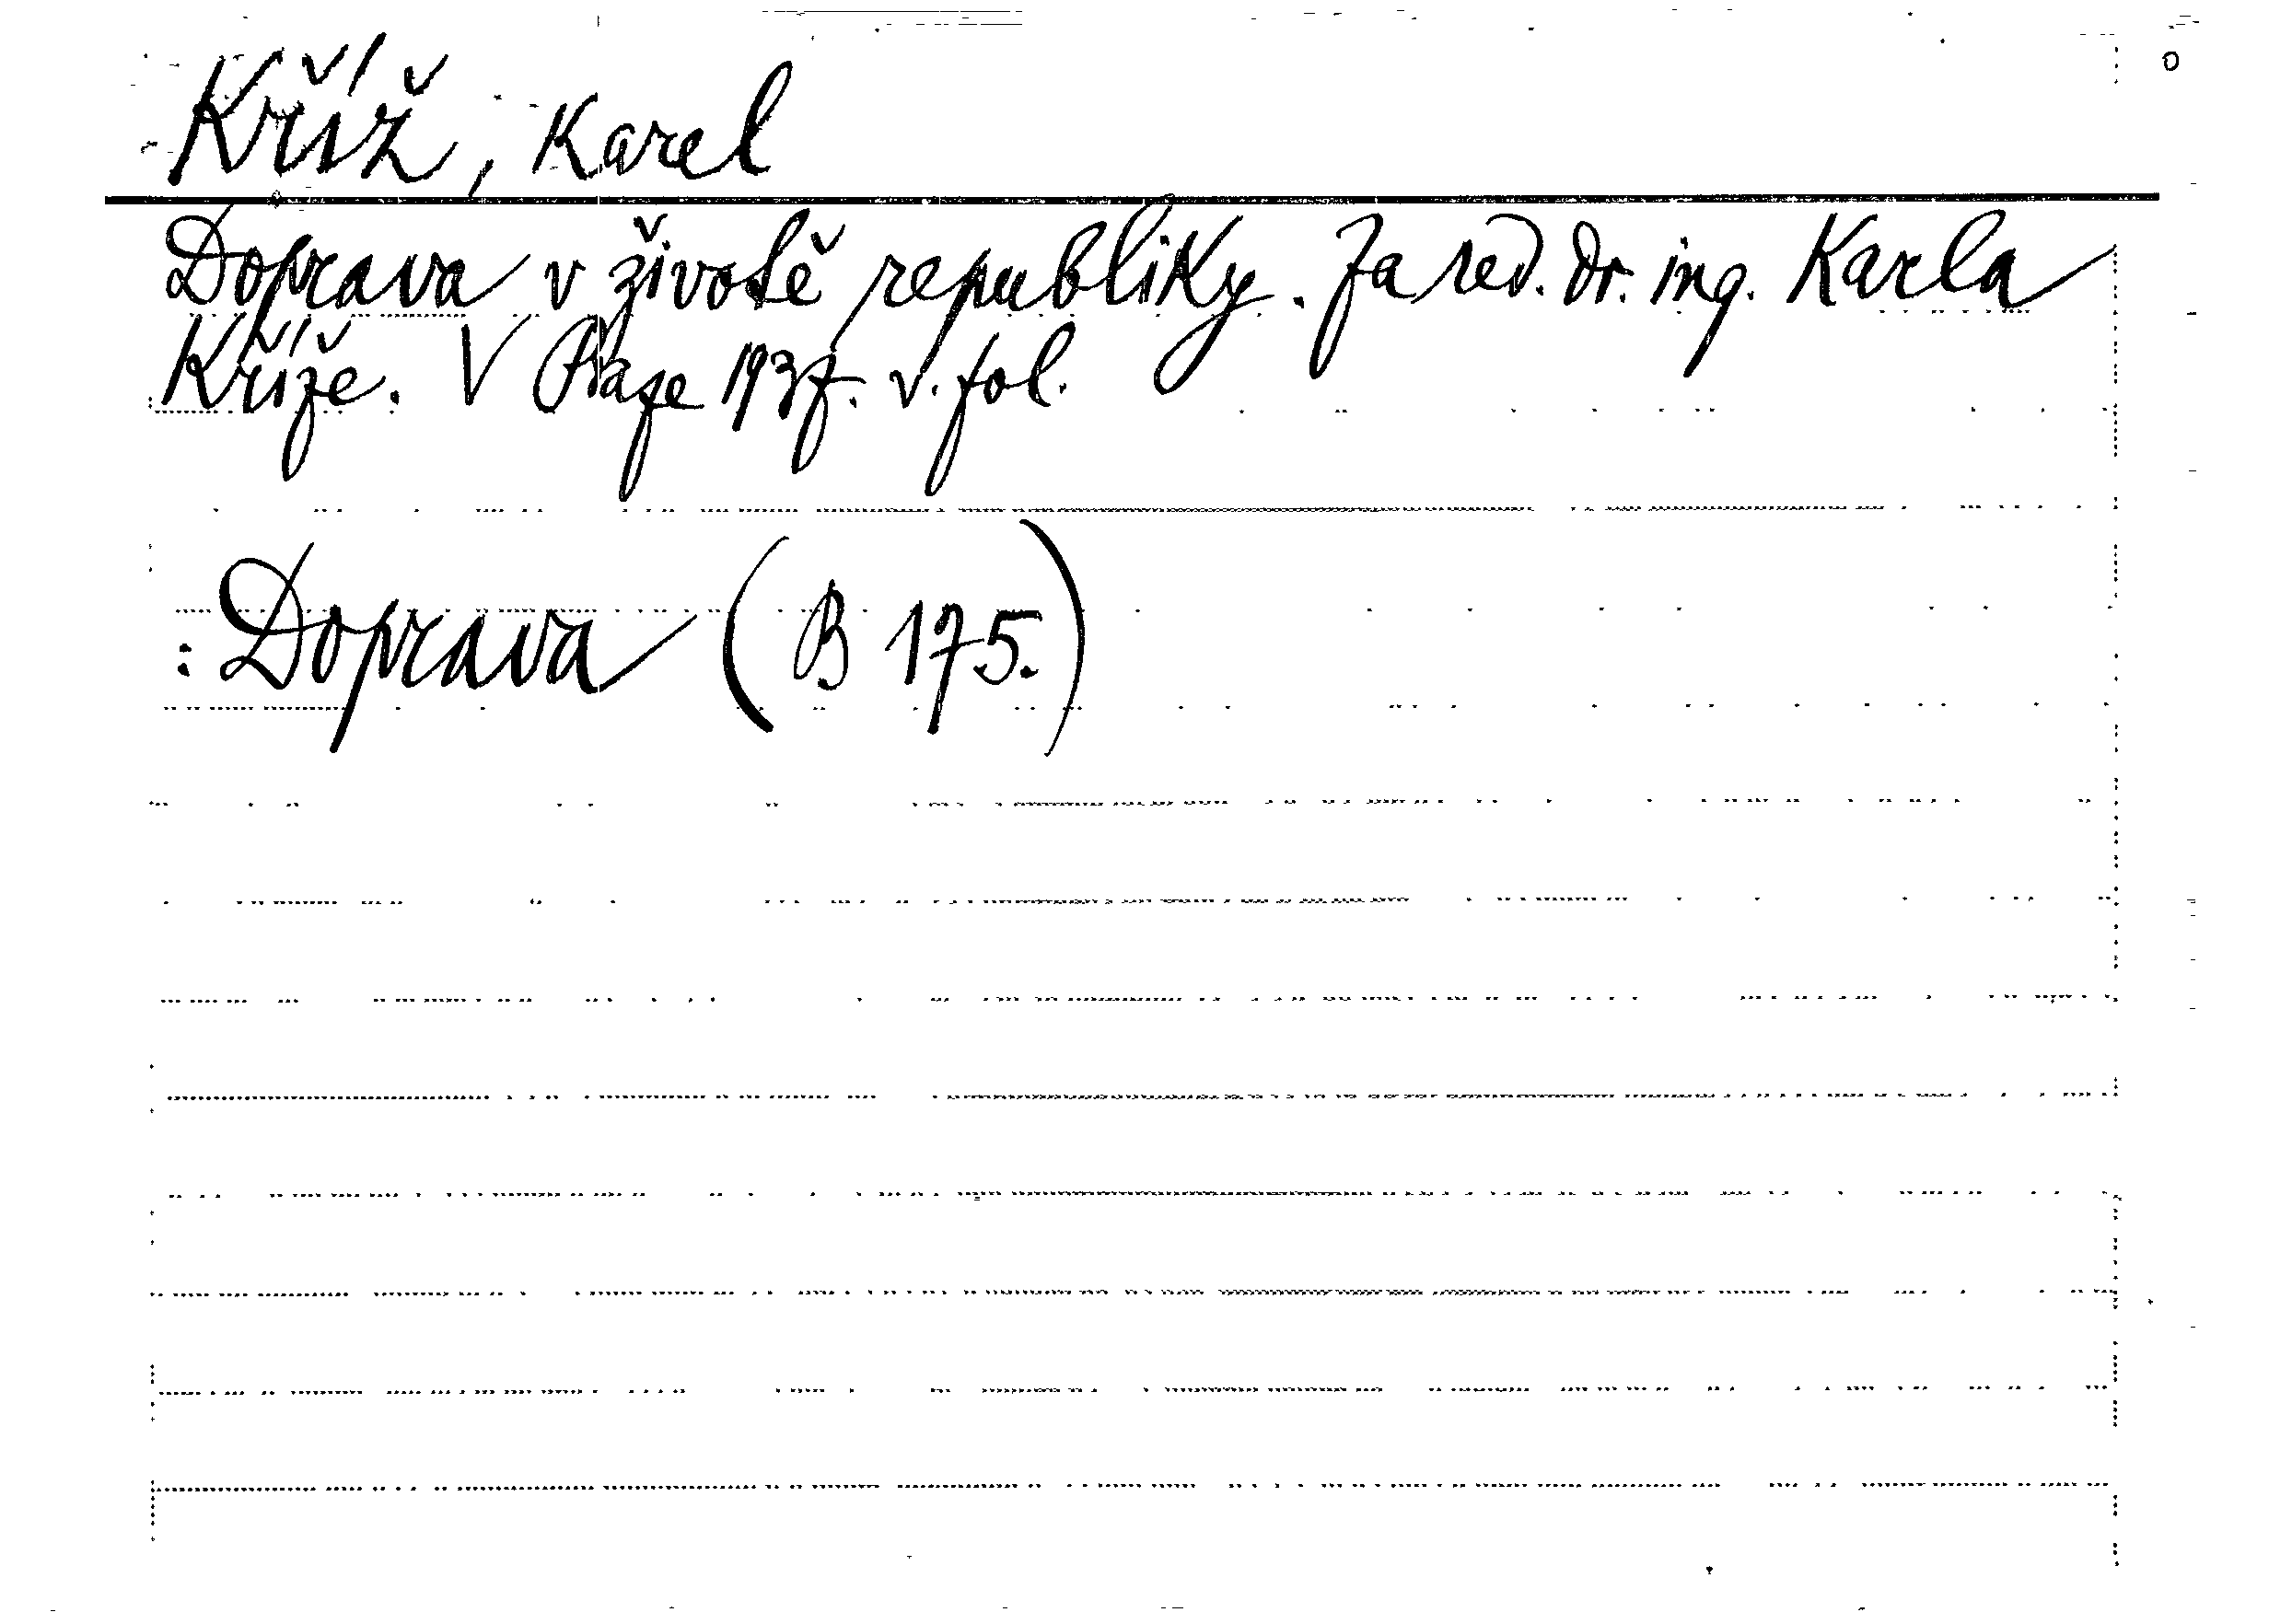 Kříž, Karel
Doprava v životě republiky. Za red. dr. ing. Karla
Kříže. V Praze 1937. v. fol.
: Doprava (B 175.)